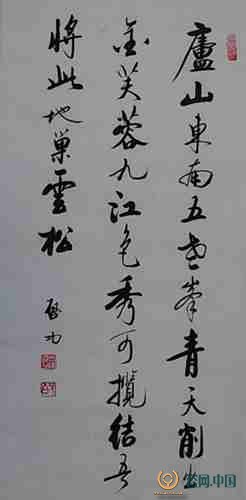 廬山東南五老峯青天削出
金芙蓉九江色秀可攬結吾
將此地巢雲松
启功
网.中国